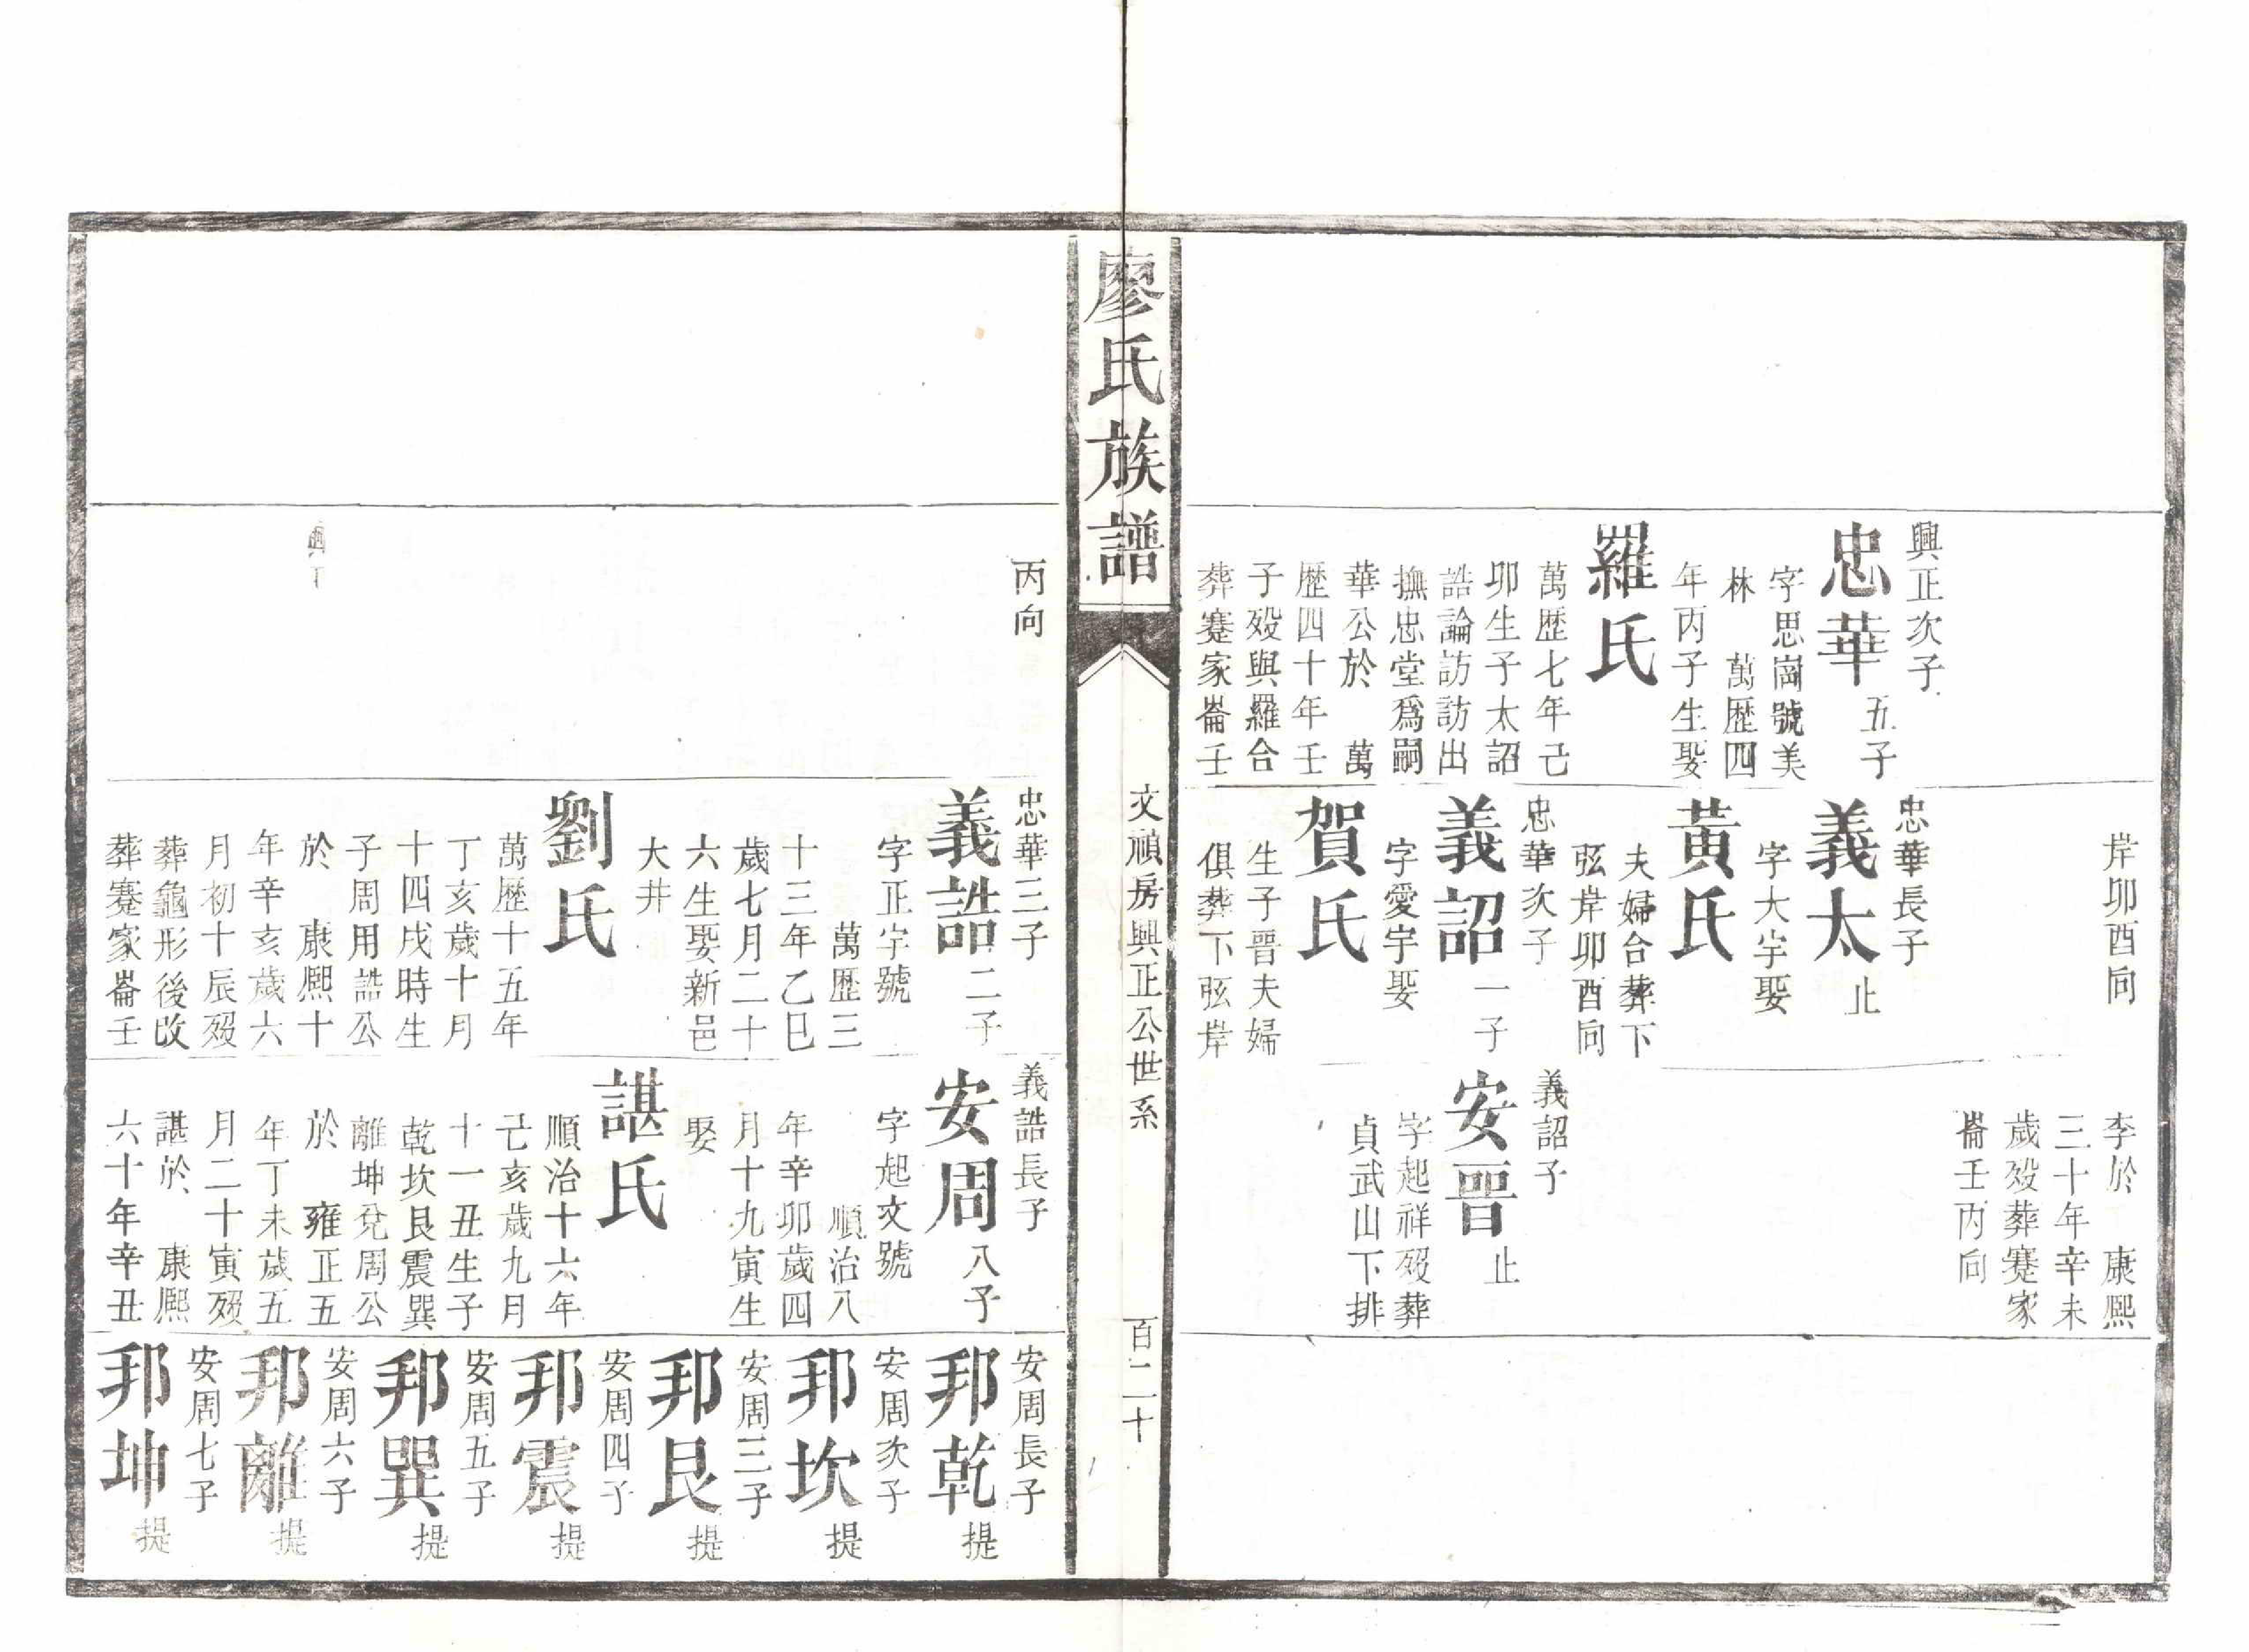 興正次子
忠華五子
字思崗號美
林　萬歷四
年丙子生娶
羅氏
萬歷七年己
卯生子太詔
誥論訪訪出
撫忠堂爲嗣
華公於　萬
歷四十年壬
子殁與羅合
葬蹇家崙壬
岸卯酉向
忠華長子
義太止
字大宇娶
黃氏
夫婦合葬下
弦岸卯酉向
忠華次子
義詔一子
字愛宇娶
賀氏
生子晋夫婦
俱葬下弦岸
李於　康熙
三十年辛未
歲殁葬蹇家
崙壬丙向
義詔子
安晋止
字起祥殁葬
貞武山下排
廖氏族譜
文禎房興正公世系
百二十
丙向
忠華三子
義誥二子
字正宇號
萬歷三
十三年乙巳
歲七月二十
六生娶新邑
大井
劉氏
萬歷十五年
丁亥歲十月
十四戌時生
子周用誥公
於　康熙十
年辛亥歲六
月初十辰殁
葬龜形後改
葬蹇家崙壬
義誥長子
安周八子
字起文號
順治八
年辛卯歲四
月十九寅生
娶
諶氏
順治十六年
己亥歲九月
十一丑生子
乾坎艮震巽
離坤兌周公
於　雍正五
年丁未歲五
月二十寅殁
諶於　康熙
六十年辛丑
安周長子
邦乾提
安周次子
邦坎提
安周三子
邦艮提
安周四子
邦震提
安周五子
邦巽提
安周六子
邦離提
安周七子
邦坤提